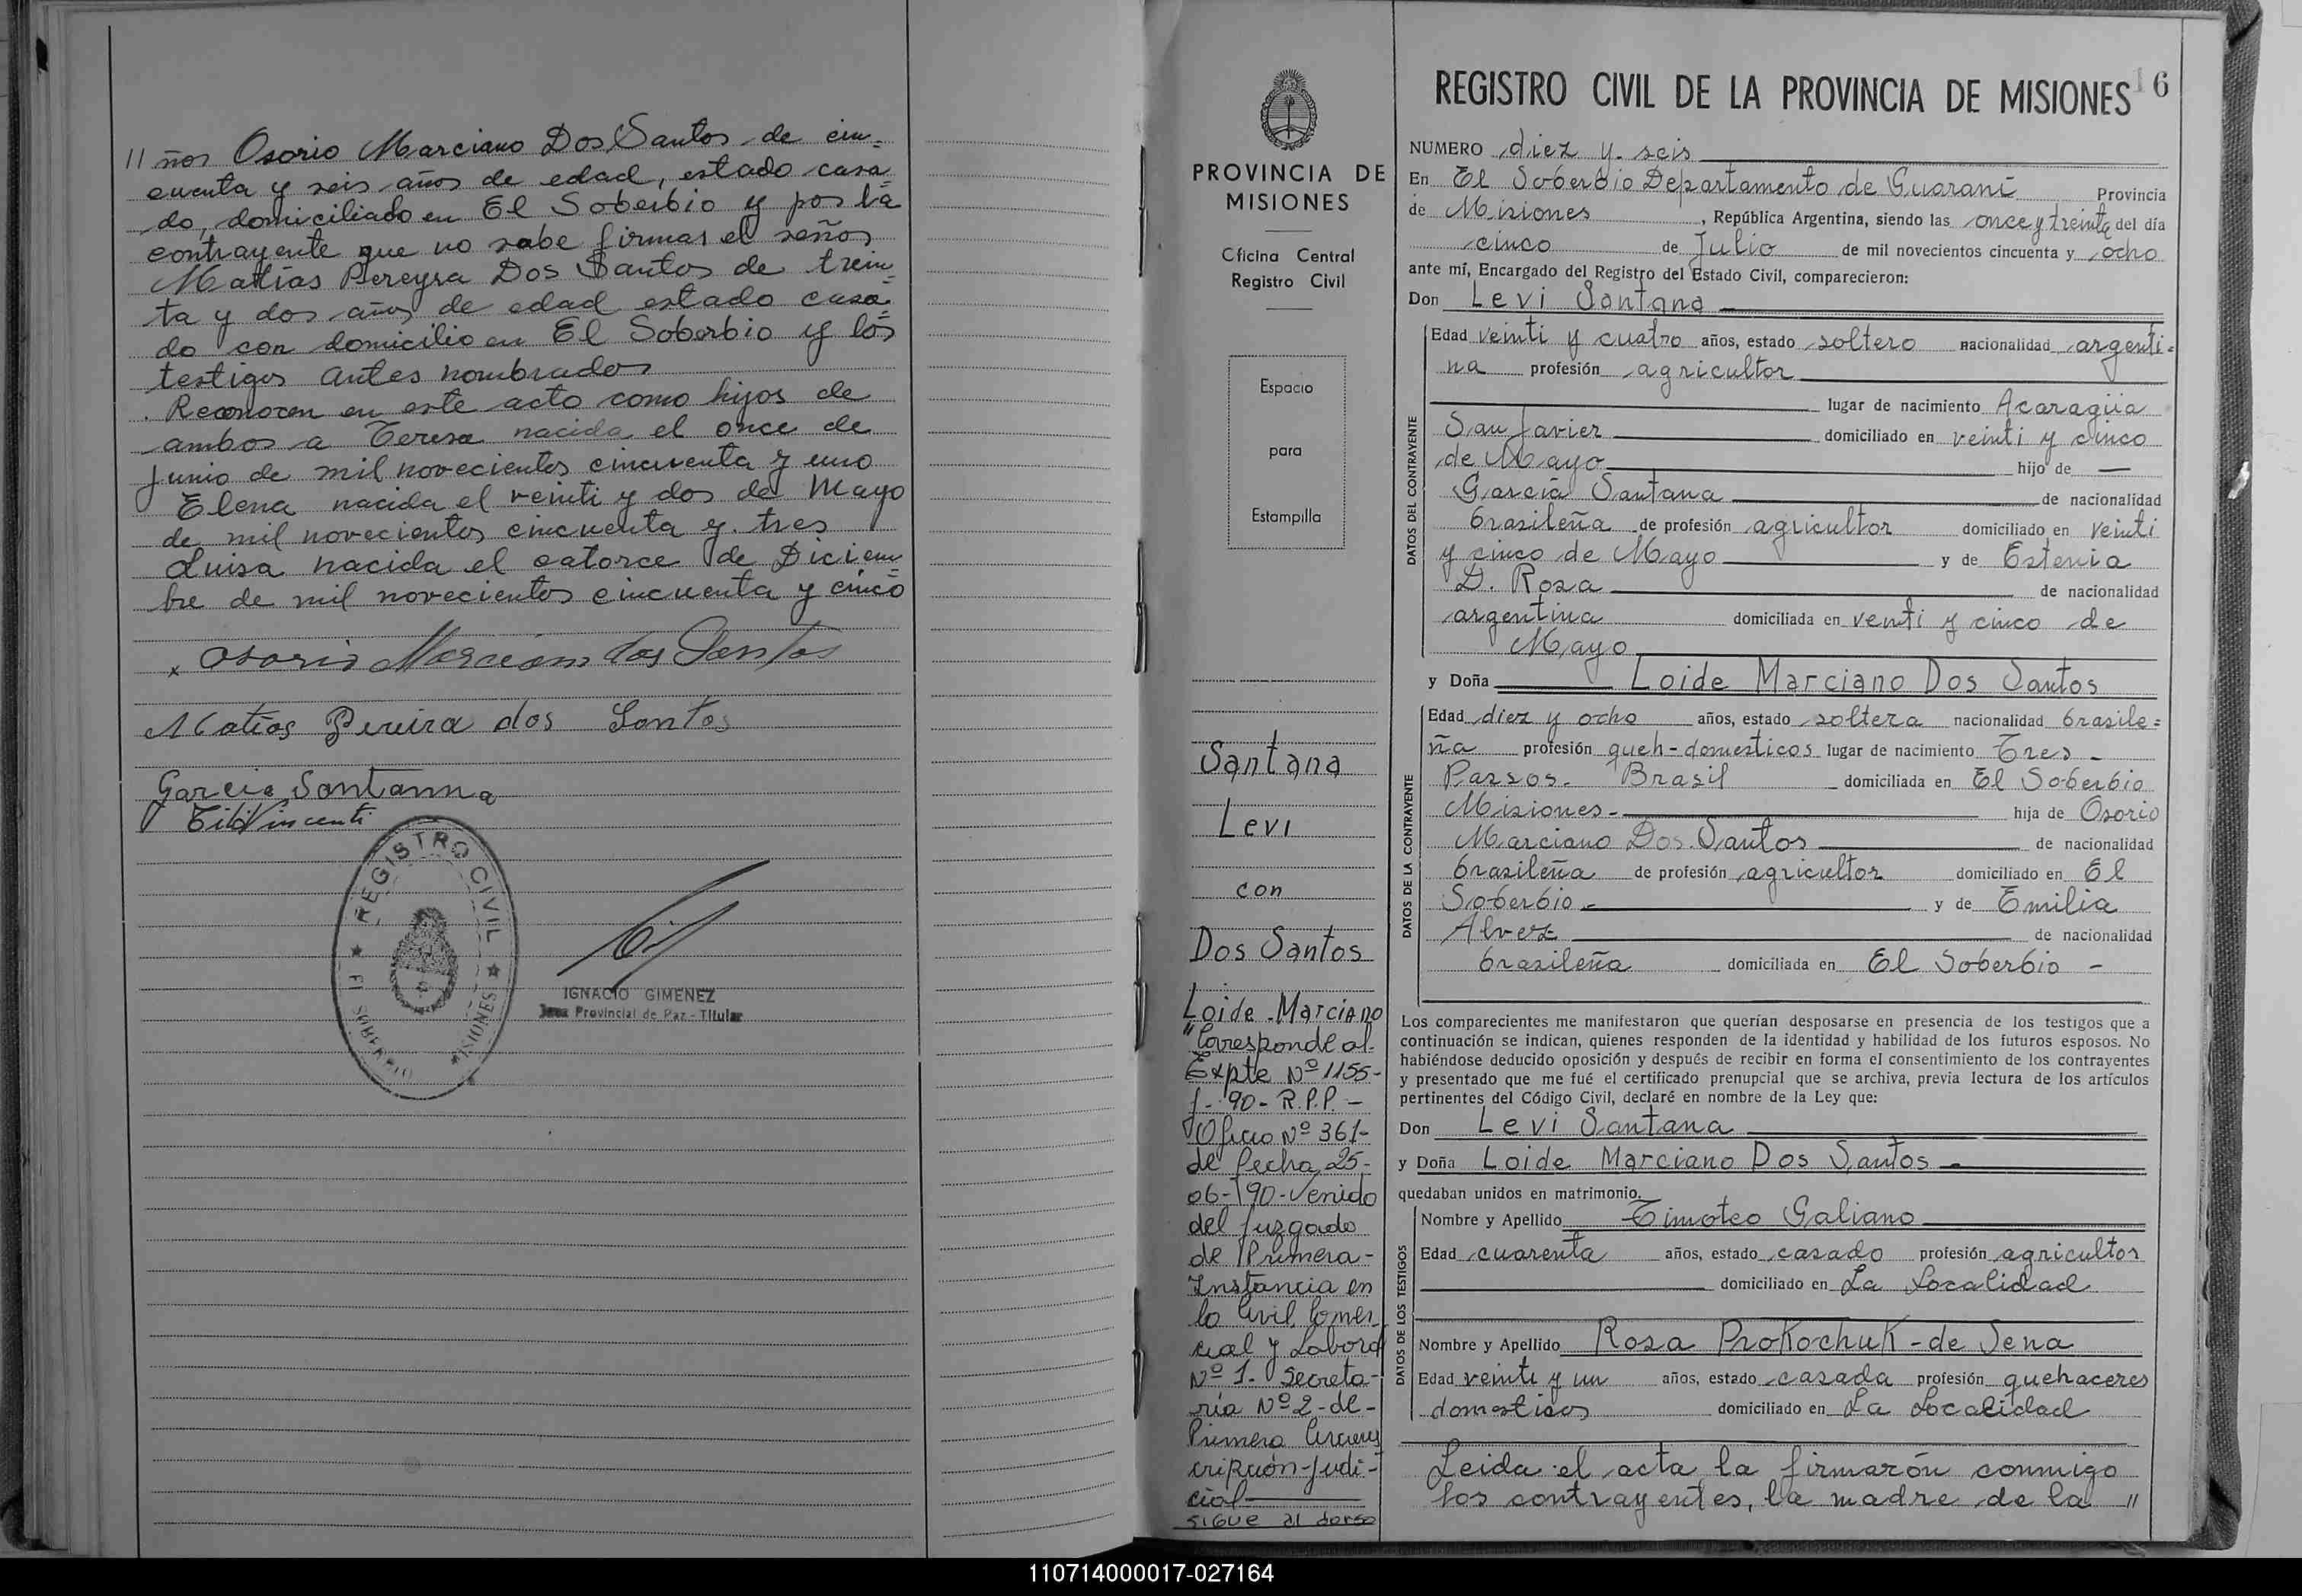 11 ños Osorio Marciano Dos Santos de cin=
cuenta y seis años de edad, estado casa=
do, domiciliado en El Soberbio y por la
contrayente que no sabe firmar el señor
Matías Pereyra Dos Santos de trein=
ta y dos años de edad estado casa=
do con domicilio en El Soberbio y los
testigos antes nombrados
. Reconocen en este acto como hijos de
ambos a Teresa nacida el once de
junio de mil novecientos cincuenta y uno
Elena nacida el veinti y dos de Mayo
de mil novecientos cincuenta y tres
Luisa nacida el catorce de Diciem=
bre de mil novecientos cincuenta y cinco
x Osorio Marciano dos Santos
Matios Pereira dos Santos
Garcia Santanna
REGISTRO CIVIL
EL SOBERBIO
MISIONES
IGNACIO GIMENEZ
Juez Provincial de Paz - Titular
PROVINCIA DE
MISIONES
Oficina Central
Registro Civil
Espacio
para
Estampilla
Santana
Levi
con
Dos Santos
Loide Marciano
"Corresponde al
Expte Nº 1155-
f- 90- R.P.P. -
Oficio Nº 361-
de fecha 25-
06-90-Venido
del Juzgado
de Primera-
Instancia en
lo Civil, Comer
cial y Laboral
Nº 1- Secreta-
ría Nº 2-de-
Primera Circuns
cripción-Judi-
cial
sigue al dorso
REGISTRO CIVIL DE LA PROVINCIA DE MISIONES 16
NUMERO diez y seis
En El Soberbio Departamento de Guaraní Provincia
de Misiones , República Argentina, siendo las once y treinta del día
cinco de Julio de mil novecientos cincuenta y ocho
ante mí, Encargado del Registro del Estado Civil, comparecieron:
Don Levi Santana
DATOS DEL CONTRAYENTE
Edad veinti y cuatro años, estado soltero nacionalidad argenti=
na profesión agricultor
lugar de nacimiento Acaragüa
San Javier domiciliado en veinti y cinco
de Mayo hijo de —
García Santana de nacionalidad
brasileña de profesión agricultor domiciliado en veinti
y cinco de Mayo y de Estenia
D. Rosa de nacionalidad
argentina domiciliada en venti y cinco de
Mayo
y Doña Loide Marciano Dos Santos
DATOS DE LA CONTRAYENTE
Edad diez y ocho años, estado soltera nacionalidad brasile=
ña profesión queh-domesticos lugar de nacimiento Tres -
Passos- Brasil domiciliada en El Soberbio
Misiones- hija de Osorio
Marciano Dos Santos de nacionalidad
brasileña de profesión agricultor domiciliado en El
Soberbio - y de Emilia
Alvez de nacionalidad
brasileña domiciliada en El Soberbio -
Los comparecientes me manifestaron que querían desposarse en presencia de los testigos que a
continuación se indican, quienes responden de la identidad y habilidad de los futuros esposos. No
habiéndose deducido oposición y después de recibir en forma el consentimiento de los contrayentes
y presentado que me fué el certificado prenupcial que se archiva, previa lectura de los artículos
pertinentes del Código Civil, declaré en nombre de la Ley que:
Don Levi Santana
y Doña Loide Marciano Dos Santos -
quedaban unidos en matrimonio.
DATOS DE LOS TESTIGOS
Nombre y Apellido Timoteo Galiano
Edad cuarenta años, estado casado profesión agricultor
domiciliado en La Localidad
Nombre y Apellido Rosa Prokochuk - de Sena
Edad veinti y un años, estado casada profesión quehaceres
domesticos domiciliado en La Localidad
Leida el acta la firmarón conmigo
los contrayentes, la madre de la "
110714000017-027164